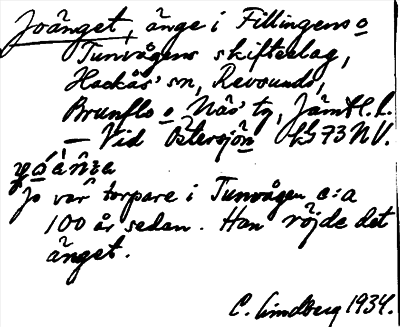 Joänget, änge i Fillingens o
Tunvågens skifteslag,
Hackås' sn, Revsunds,
Brunflo o Näs' tg, Jämtl. l.
— Vid Östersjön GS 73 NV.
Jo var torpare i Tunvågen c:a
100 år sedan. Han röjde det
änget.
C. Lindberg 1934.